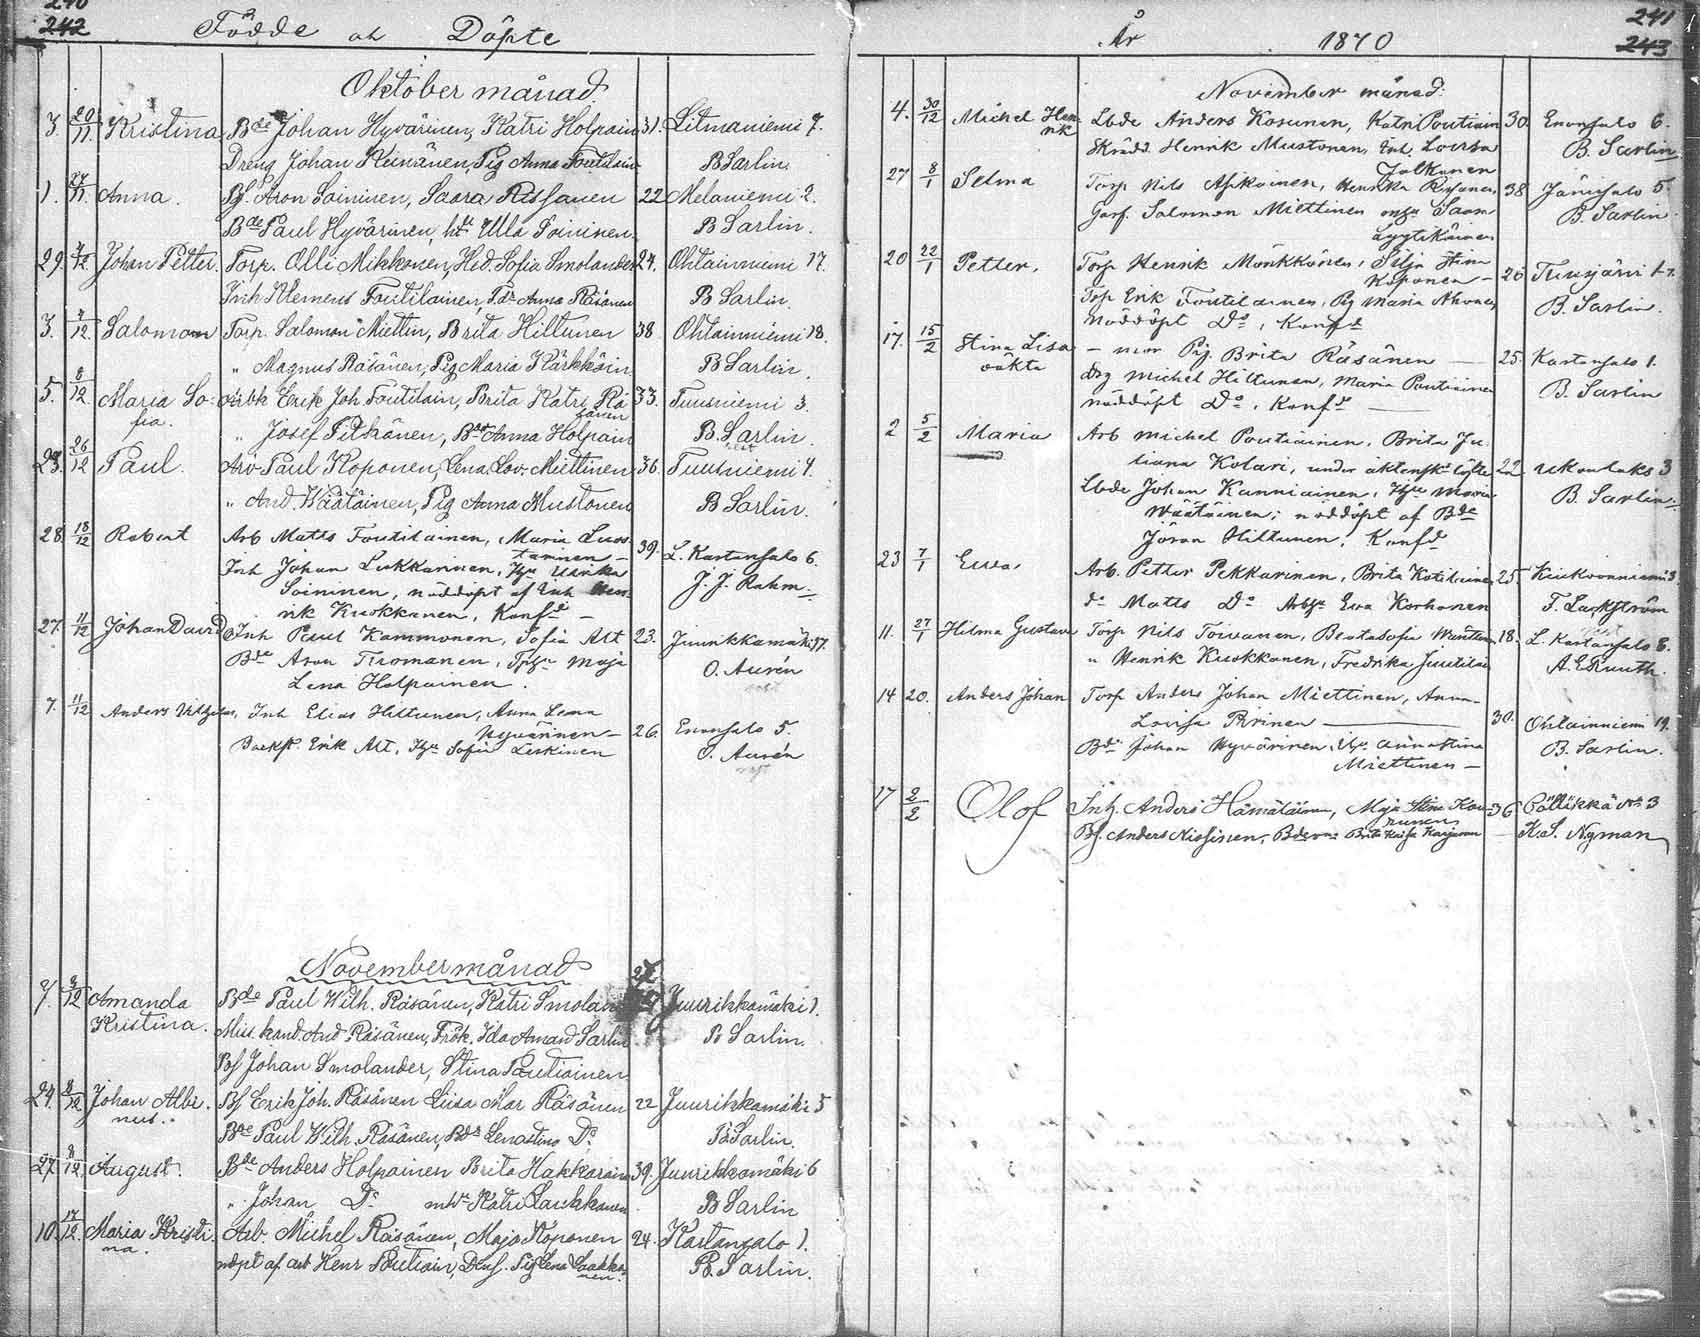 240
242
Födde och Döpte
Oktober månad
3. 20/11. Kristina Bde Johan Hyvärinen, Katri Holpain 31. Litmaniemi 7.
Dreng Johan Keinänen, Pig Anna Foutilain B Sarlin.
1. 27/11. Anna. Bf. Aron Soininen, Saara Rissanen 22 Melaniemi 2.
Bde Paul Hyvärinen, hst Ulla Soininen. B Sarlin.
29. 4/12. Johan Petter. Torp. Olli Mikkonen, Hed. Sofia Smolander 24. Ohtainniemi 17.
Inh Klemens Foutilainen, Fdr Anna Räsänen B Sarlin.
3. 4/12. Salomon Torp. Salomon Miettin, Brita Hiltunen 38. Ohtainniemi 18.
" Magnus Räsänen, Pig Maria Kärkkäin B Sarlin.
5. 8/12. Maria So- Arbk Erik Joh. Foutilain, Brita Katri Rä 33. Tuusniemi 3.
fia. sänen
" Josef Pitkänen, Bde Anna Holpain B. Sarlin.
23. 26/12 Paul. Arb Paul Koponen, Lena Lov. Miettinen 36. Tuusniemi 4.
" And. Wäätäinen, Pig Anna Mustonen B Sarlin.
28. 18/12 Robert Arb Matts Foutilainen, Maria Luos
tarinen 39. L. Kartansalo 6.
Inh Johan Lukkarinen, Hu Ulrika J. J. Rahm.
Soininen, nöddöpt af Inh Hen-
rik Kuokkanen, Konfd
27. 11/12 Johan David Inh Paul Kammonen, Sofia Alt 23. Juurikkamäki 17.
Bde Aron Tiromanen, Maja O. Aurén
Lena Holpainen.
7. 11/12 Anders Inh Elias Hiltunen, Anna Lena
Hyvärinen 26. Enonsalo 5.
Backst. Erik Alt, Hu Sofia Leskinen O. Aurén
November månad
7. 8/12 Amanda Bde Paul Wilh. Räsänen, Katri Smolan 27 Juurikkamäki 1.
Kristina. kand. And Räsänen, Frök. Ida Amand Sarlin B Sarlin.
Bf Johan Smolander, Stina Poutiainen
24. 8/12 Johan Albi- Bf Erik Joh. Räsänen Liisa Mar Räsänen 22 Juurikkamäki 5
nus. Bde Paul Wilh. Räsänen, Bdr Lenastina Do B Sarlin.
27. 8/12 August. Bde Anders Holpainen Brita Hakkarain 39. Juurikkamäki 6
" Johan Do Katri Laukkanen B Sarlin
10. 17/12. Maria Kristi- Arb. Michel Räsänen, Maja Koponen 24. Kartansalo 1.
na. nöpt af arb Henr Poutiain, Pig Lena Laakko- B. Sarlin.
nen.
241
243
År 1870
November månad.
4. 30/12 Michel Hen- Lbde Anders Kosunen, Katri Poutiain 30. Enonsalo 6.
rik Skrädd. Henrik Mustonen, Enk. Lovisa B. Sarlin
Jalkanen
27 8/1 Selma Torp Nils Asikainen, Henrika Rissanen 38 Jänissalo 5.
Salomon Miettinen Saara B. Sarlin.
Lyytikäinen
20 22/1 Petter. Torp Henrik Mönkkönen, Silja Stina
Koponen 26
Torp Erik Foutilainen, Pig Maria Ahonen B. Sarlin.
nöddöpt Do, Konfd
17. 15/2 Stina Lisa - mor Pig. Brita Räsänen 25. Kartansalo 1.
oäkta Drg Michel Hiltunen, Maria Poutiainen B. Sarlin
nöddöpt Do, Konfd
2 5/2 Maria Arb Michel Poutiainen, Brita Ju-
liana Kolari, under äktensk. löfte 22 Ukonlaks 3
Lbde Johan Kanniainen, Hu Maria B. Sarlin.
Wäätäinen; nöddöpt af Bde
Jöran Hiltunen, Konfd
23 7/1 Ewa Arb. Petter Pekkarinen, Brita Kotilainen 25.
do Matts Do Ewa Korhonen F. Lackström
11. 27/1 Hilma Gustava Torp Nils Toivanen, Beata Sofia 18. L. Kartansalo 6.
" Henrik Kuokkanen, Fredrika Juutilai A. E. Ruuth.
14 20. Anders Johan Torp Anders Johan Miettinen, Anna-
Lovisa Pirinen 30. Ohtainniemi 19.
Bde Johan Hyvärinen, Hu Anna Stina B. Sarlin.
Miettinen
17 2/2 Olof Inh. Anders Hämäläinen, Maja Stina Kau- 36 Pöllikkä No 3
nunen
Bf. Anders Nissinen, Brita Kaisa K. S. Nyman